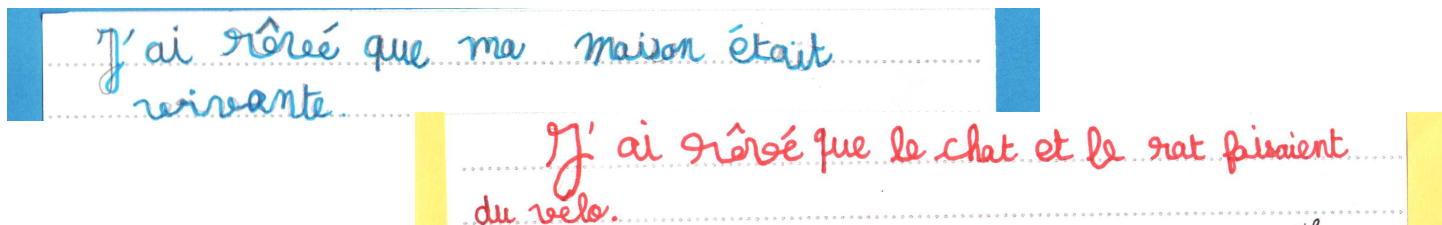 J'ai rêvé que ma maison était
vivante.
J'ai rêvé que le chat et le rat faisaient
du vélo.